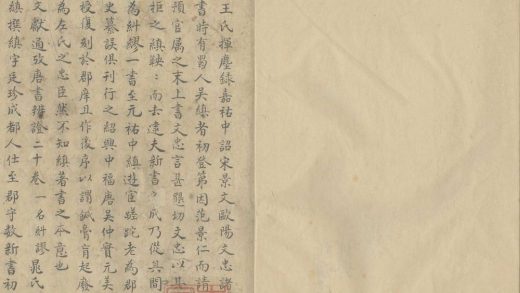 王氏揮塵錄嘉祐中詔宋景文歐陽文忠諸
書時有蜀人吳縝者初登第因范景仁而請
預官属之末上書文忠言甚懇切文忠以其
拒之縝鞅〻而去逮夫新書之成乃從其間
為糾繆一書至元祐中縝遊宦蹉跎老為郡
史纂誤俱刊行之紹興中福唐吳仲實元美
授復刻於郡庠且作後序以謂鍼膏肓起廢
為左氏之忠臣然不知縝著書之本意也
文獻通攷唐書辨證二十卷一名糾謬晁氏
縝撰縝字廷珍成都人仕至郡守數新書初